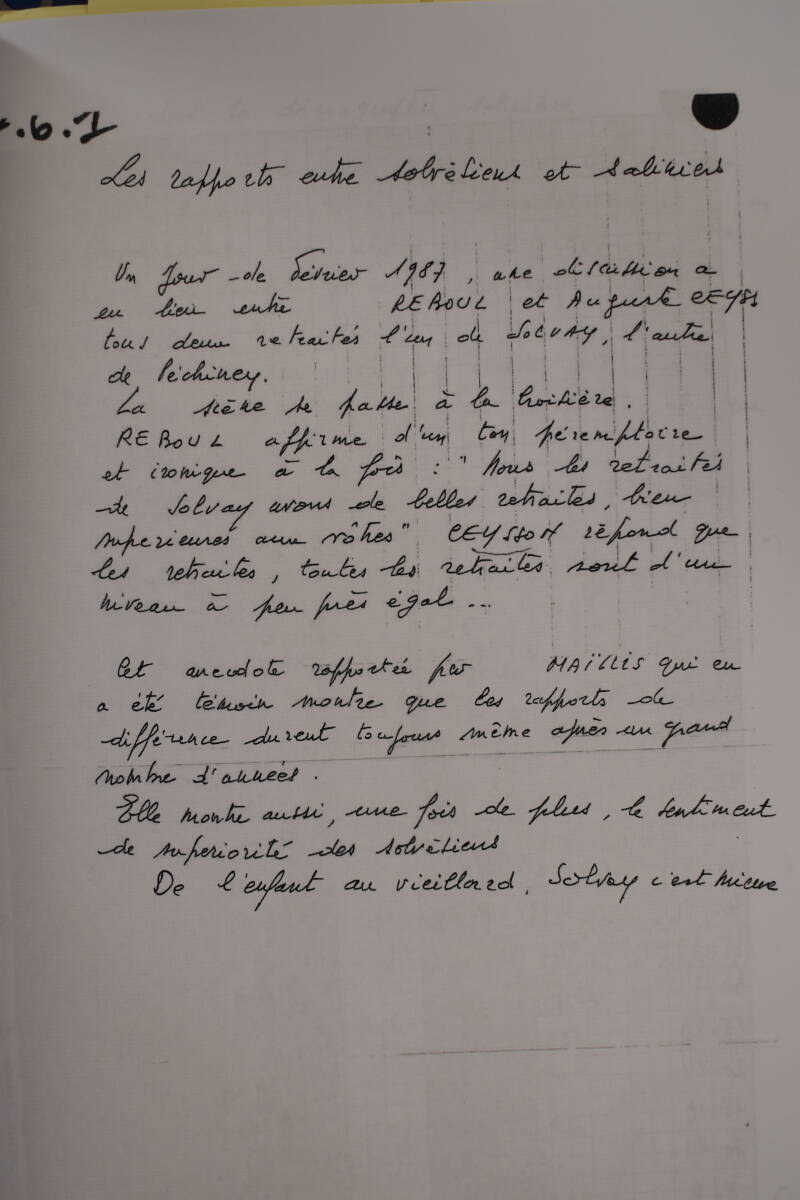 .6.1
Les rapports entre solvésiens et saliniers
Un jour de Février 1987, une discussion a
eu lieu entre REBOUL et Auguste CEYSS
tous deux retraités l'un de SOLVAY, l'autre
de Péchiney.
La scène se passe à la Croisière.
REBOUL affirme d'un ton péremptoire
et ironique à la fois : "Nous les retraités
de Solvay avons de belles retraites, bien
superieures aux vôtres" CEYSSON répond que
les retraites, toutes les retraites sont d'un
niveau à peu près égal...
Cet anecdote rapportée par MAÏLLIS qui en
a été témoin montre que les rapports de
différence durent toujours même après un grand
nombre d'années.
Elle montre aussi, une fois de plus, le sentiment
de superiorité des solvésiens
De l'enfant au vieillard, Solvay c'est mieux